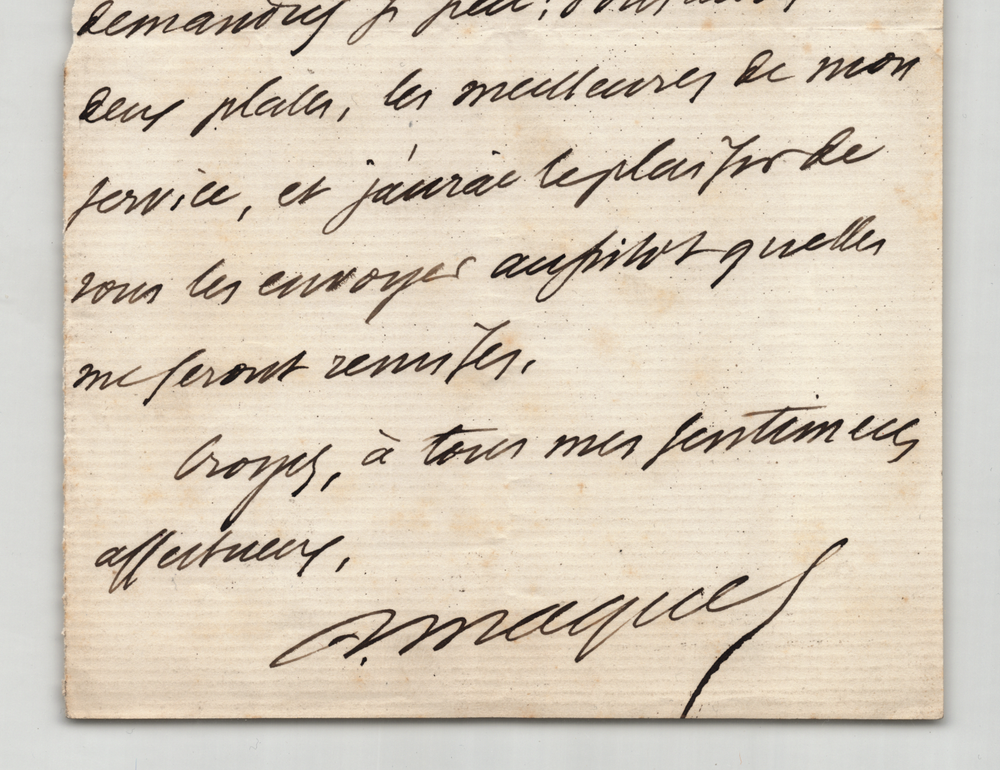 demandres
deux places, les meilleures de mon
service, et j'aurai le plaisir de
vous les envoyer aussitôt quelles
me seront remises.
Croyez, à tous mes sentimens
affectueux,
A. Maquet